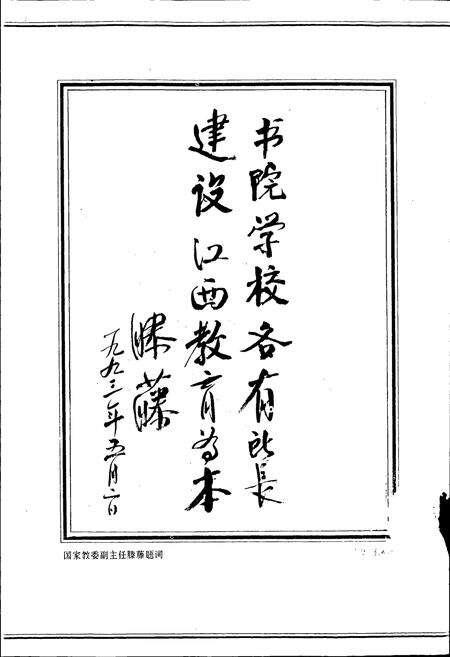 书院学校各有所長
建设江西教育为本
滕藤
一九九三年五月六日
国家教委副主任滕藤题词